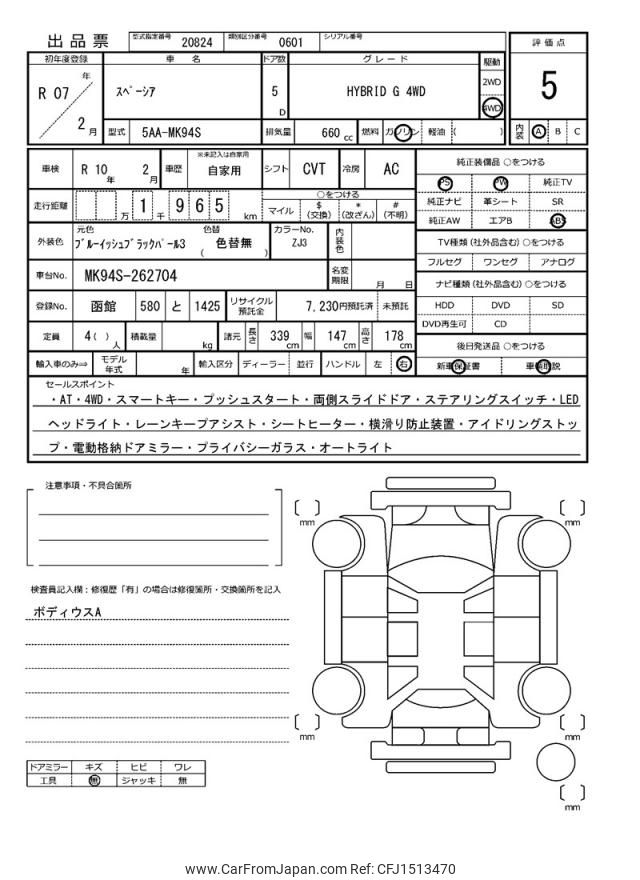 出品票 型式指定番号 20824 類別区分番号 0601 シリアル番号
初年度登録 車名 ドア数 グレード 駆動 評価点
R 07 年 2 月 スペーシア 5 D HYBRID G 4WD 2WD 4WD 5
型式 5AA-MK94S 排気量 660 cc 燃料 ガソリン 軽油 ( ) 内装 A B C
車検 R 10 年 2 月 車歴 ※未記入は自家用 自家用 シフト CVT 冷房 AC 純正装備品 ○をつける
PS PW 純正TV
走行距離 万 1 千 9 6 5 km ○をつける
マイル $ (交換) * (改ざん) # (不明) 純正ナビ 革シート SR
純正AW エアB ABS
外装色 元色 ブルーイッシュブラックパール3 色替 ( 色替無 ) カラーNo. ZJ3 内装色 TV種類 (社外品含む) ○をつける
フルセグ ワンセグ アナログ
車台No. MK94S-262704 名変期限 月 日 ナビ種類 (社外品含む) ○をつける
登録No. 函館 580 と 1425 リサイクル預託金 7,230円預託済 未預託 HDD DVD SD
DVD再生可 CD
定員 4 ( ) 人 積載量 kg 諸元 長さ 339 cm 幅 147 cm 高さ 178 cm 後日発送品 ○をつける
輸入車のみ⇒ モデル年式 年 輸入区分 ディーラー 並行 ハンドル 左 右 新車保証書 車輌取説
セールスポイント
・AT・4WD・スマートキー・プッシュスタート・両側スライドドア・ステアリングスイッチ・LED
ヘッドライト・レーンキープアシスト・シートヒーター・横滑り防止装置・アイドリングストッ
プ・電動格納ドアミラー・プライバシーガラス・オートライト
注意事項・不具合箇所
mm mm
検査員記入欄：修復歴「有」の場合は修復箇所・交換箇所を記入
ボディウスA
mm mm
ドアミラー キズ ヒビ ワレ
工具 無 ジャッキ 無
mm
www.CarFromJapan.com Ref: CFJ1513470